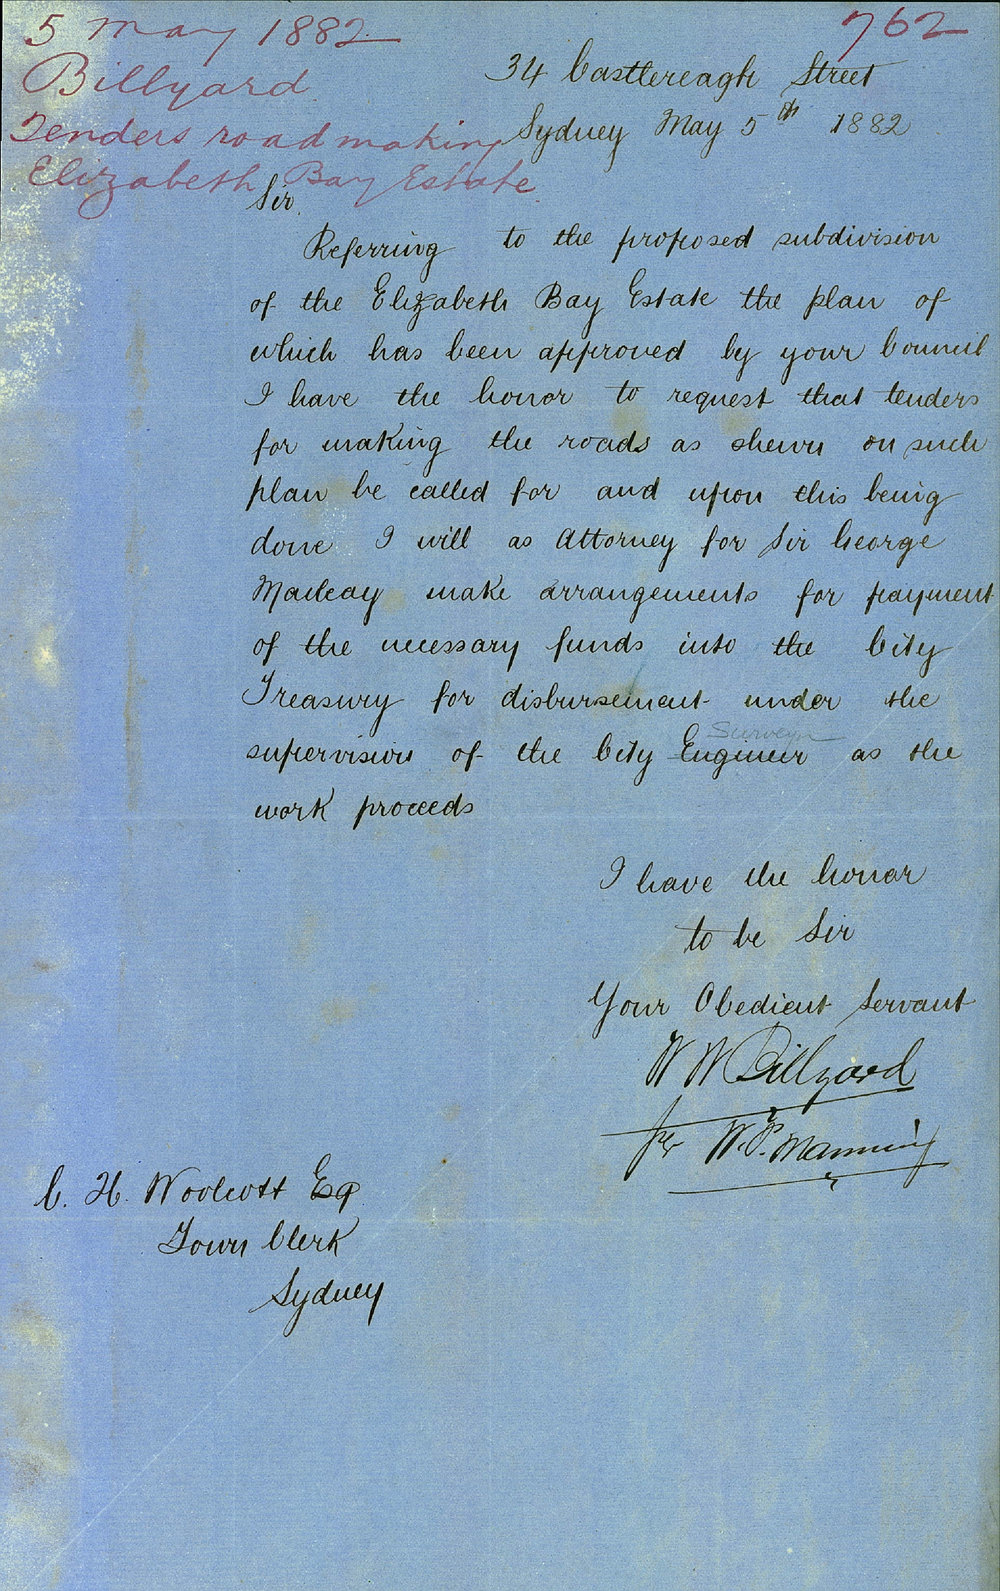 5 May 1882
762
Billyard
Tenders roadmaking
Elizabeth Bay Estate
34 Castlereagh Street
Sydney May 5th 1882
Sir
Referring to the proposed subdivision
of the Elizabeth Bay Estate the plan of
which has been approved by your Council
I have the honor to request that tenders
for making the roads as shewn on such
plan be called for and upon this being
done I will as Attorney for Sir George
Macleay make arrangements for payment
of the necessary funds into the City
Treasury for disbursement under the
Surveyor
supervision of the City Engineer as the
work proceeds
I have the honor
to be Sir
Your Obedient Servant
W W Billyard
per W. P. Manning
C. H. Woolcott Esq
Town Clerk
Sydney